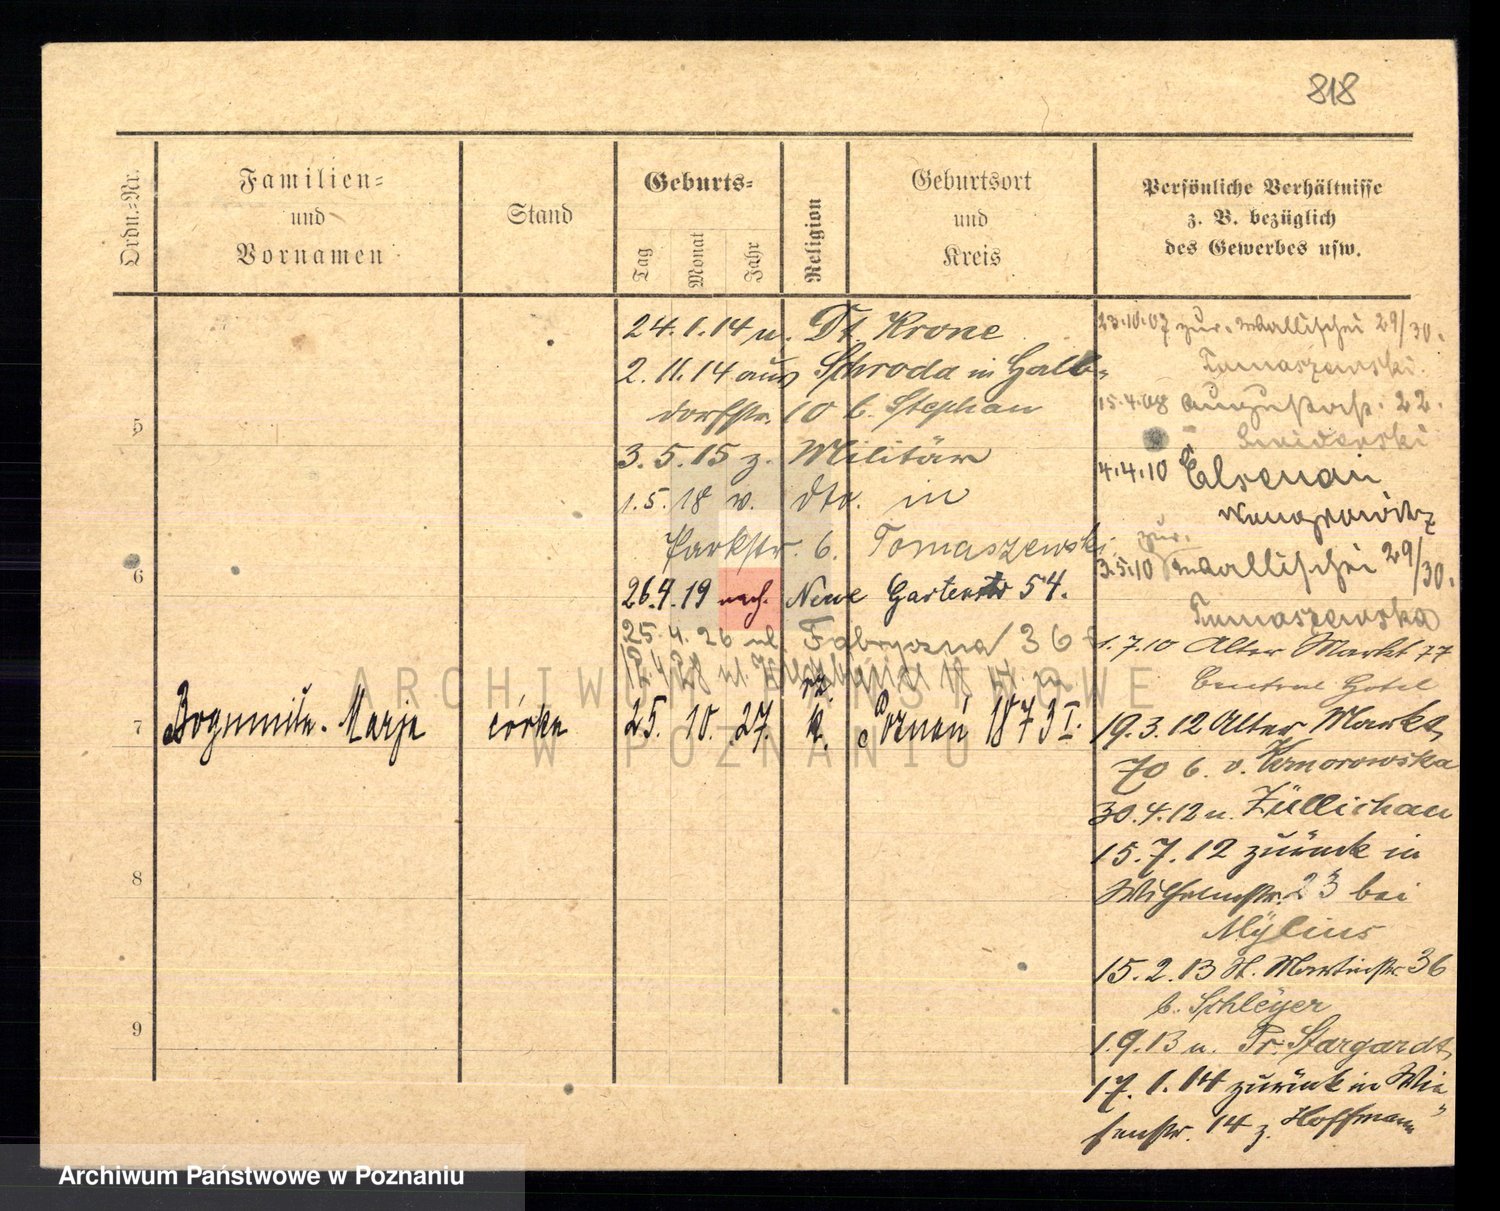 818
Ordn.-Nr.
Familien-
und
Vornamen
Stand
Geburts-
Tag
Monat
Jahr
Religion
Geburtsort
und
Kreis
Persönliche Verhältnisse
z. B. bezüglich
des Gewerbes usw.
24.1.14 n. Dt. Krone
2.11.14 aus Schroda in Halb-
dorfstr. 10 b. Stephan
3.5.15 z. Militär
1.5.18 v. dto. in
Parkstr. 6. Tomaszewski
26.9.19 nach. Neue Gartenstr 54.
25.4.26 ul. Fabryczna 36
5
6
7
Bogumiła. Marja
córka
25. 10. 27.
rz.
k.
Poznań 1873 I.
8
9
23.10.07 zur. Wallischei 29/30.
Tomaszewski.
15.4.08 Augustastr. 22.
Swiderski
4.4.10 Elsenau
Wongrowitz
zur.
3.5.10 Wallischei 29/30.
Tomaszewska
1.7.10 Alter Markt 77
Central Hotel
19.3.12 Alter Markt
70 b. v. Komorowska
30.4.12 n. Züllichau
15.7.12 zurück in
Wilhelmstr. 23 bei
Mylius
15.2.13 St. Martinstr. 36
b. Schleyer
1.9.13 n. Pr. Stargardt
17.1.14 zurück in Wie-
senstr. 14 z. Hoffmann
ARCHIWUM PAŃSTWOWE
W POZNANIU
Archiwum Państwowe w Poznaniu